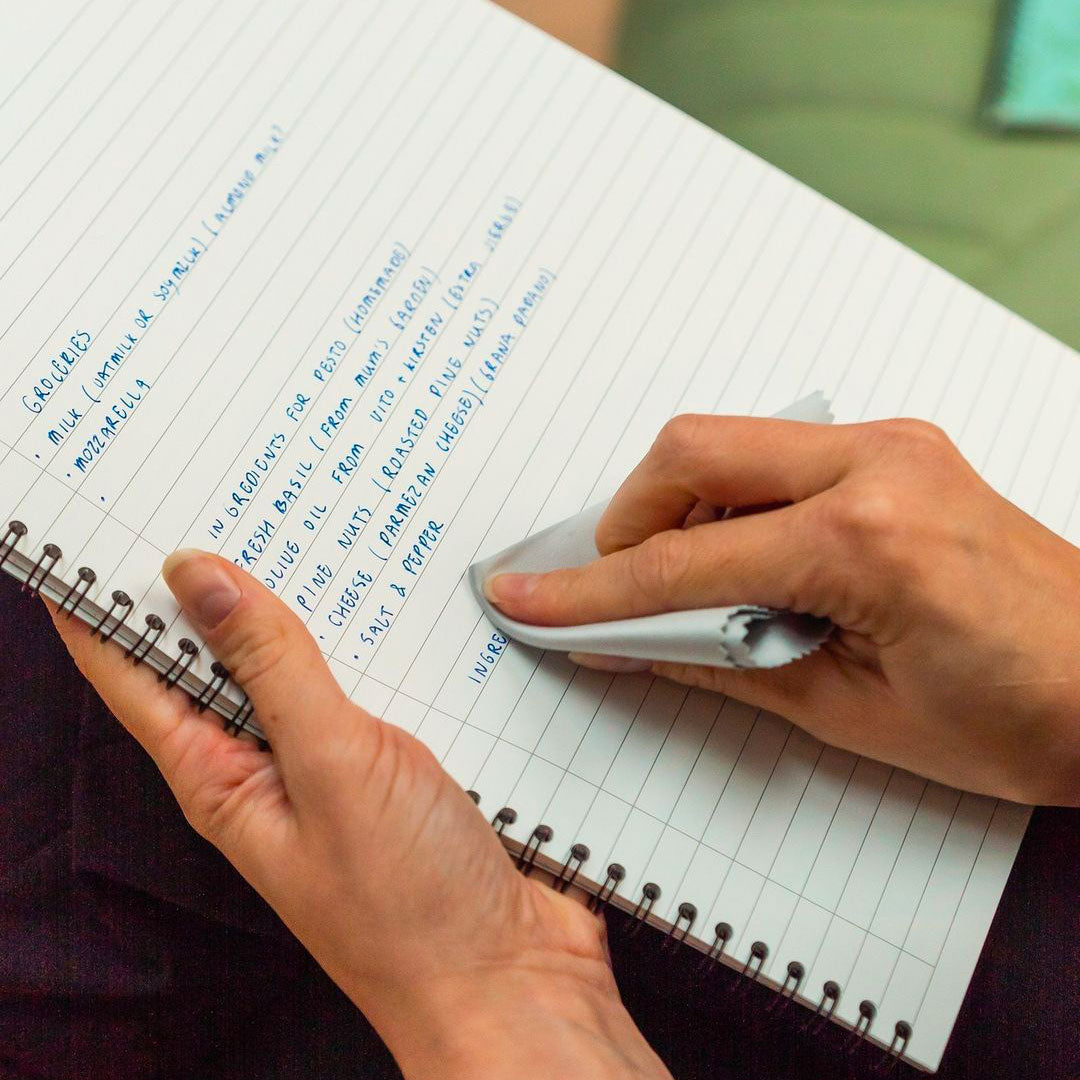 GROCERIES
• MILK (OATMILK OR SOYMILK) (ALMOND MILK)
• MOZZARELLA
•
INGREDIENTS FOR PESTO (HOMEMADE)
FRESH BASIL (FROM MUM'S GARDEN)
OLIVE OIL FROM VITO + KIRSTEN (EXTRA
PINE NUTS (ROASTED PINE NUTS)
• CHEESE (PARMEZAN CHEESE) (GRANA PADANO)
• SALT & PEPPER
INGRE